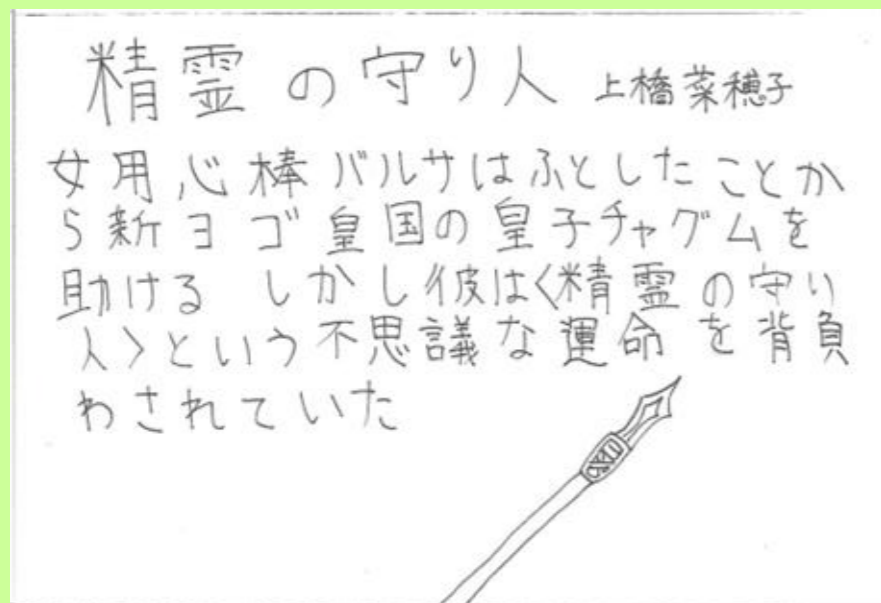 精霊の守り人 上橋菜穂子
女用心棒バルサはふとしたことか
ら新ヨゴ皇国の皇子チャグムを
助ける しかし彼は〈精霊の守り
人〉という不思議な運命を背負
わされていた